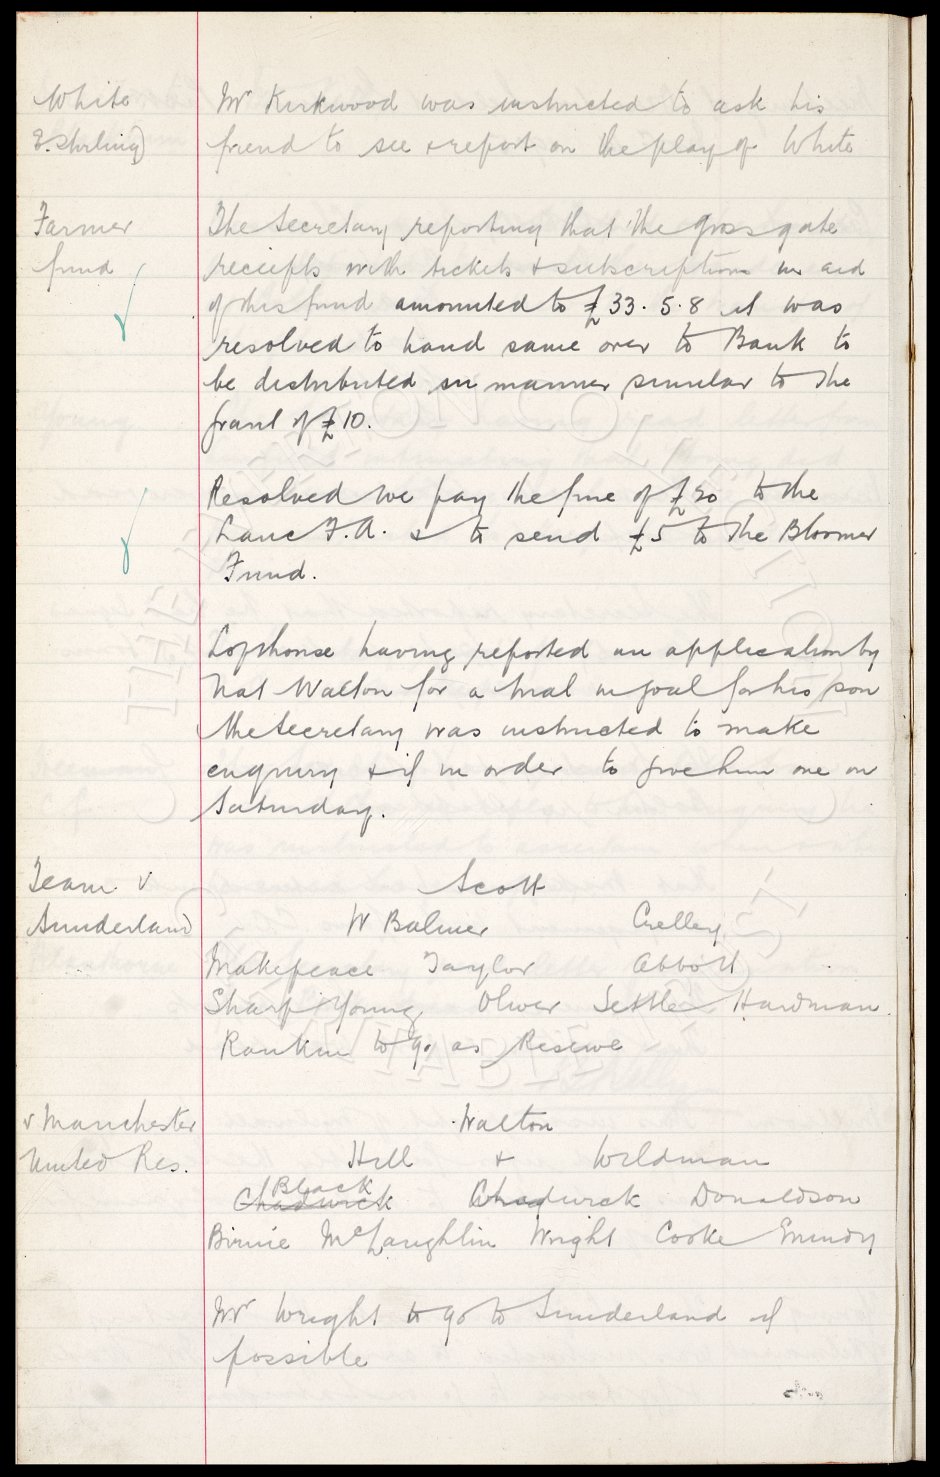 White
E. Stirling)
Mr Kirkwood was instructed to ask his
friend to see & report on the play of White
Farmer
fund
The Secretary reporting that the gross gate
receipts with tickets & subscriptions in aid
of this fund amounted to £33. 5. 8 it was
resolved to hand same over to Bank to
be distributed in manner similar to the
grant of £10.
Resolved we pay the fine of £20 to the
Lanc F.A. & to send £5 to the Bloomer
Fund.
Lofthouse having reported an application by
Nat Walton for a trial in goal for his son
the Secretary was instructed to make
enquiry & if in order to give him one on
Saturday.
Team v
Sunderland
Scott
W Balmer Crelley
Makepeace Taylor Abbott
Sharp Young Oliver Settle Hardman
Rankin to go as Reserve
v Manchester
United Res.
Walton
Hill & Wildman
Black
Chadwick Chadwick Donaldson
Birnie McLaughlin Wright Cooke
Mr Wright to go to Sunderland if
possible